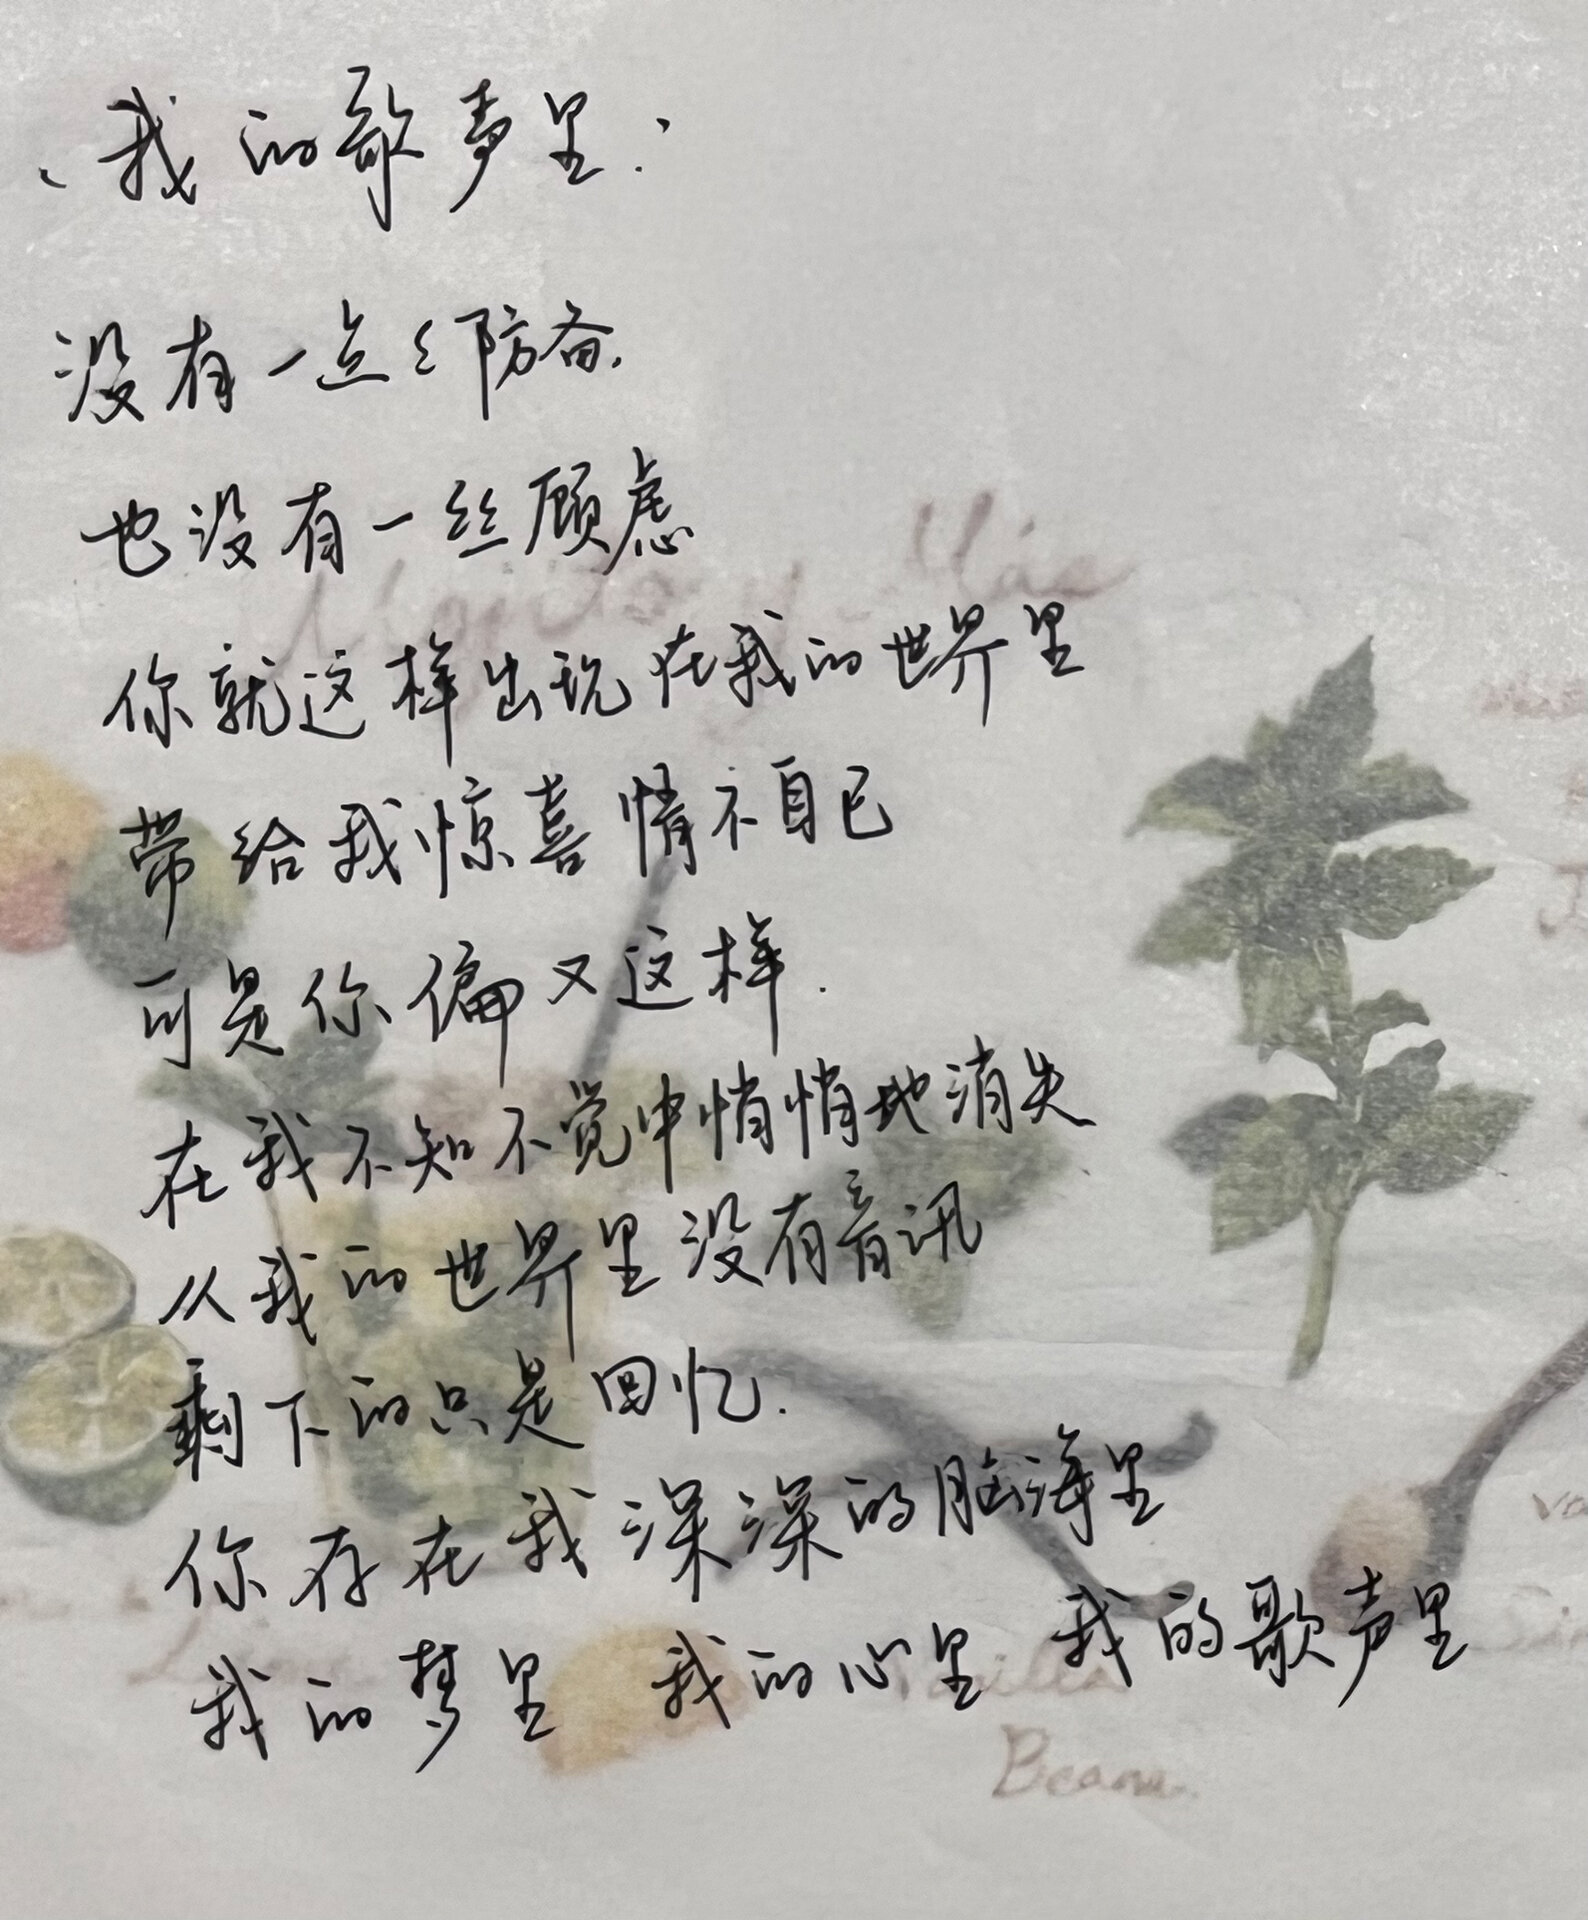 我的歌声里
没有一点々防备.
也没有一丝顾虑
你就这样出现在我的世界里
带给我惊喜 情不自已
可是你偏又这样.
在我不知不觉中悄悄地消失
从我的世界里没有音讯
剩下的只是回忆.
你存在我深深的脑海里
我的梦里 我的心里 我的歌声里